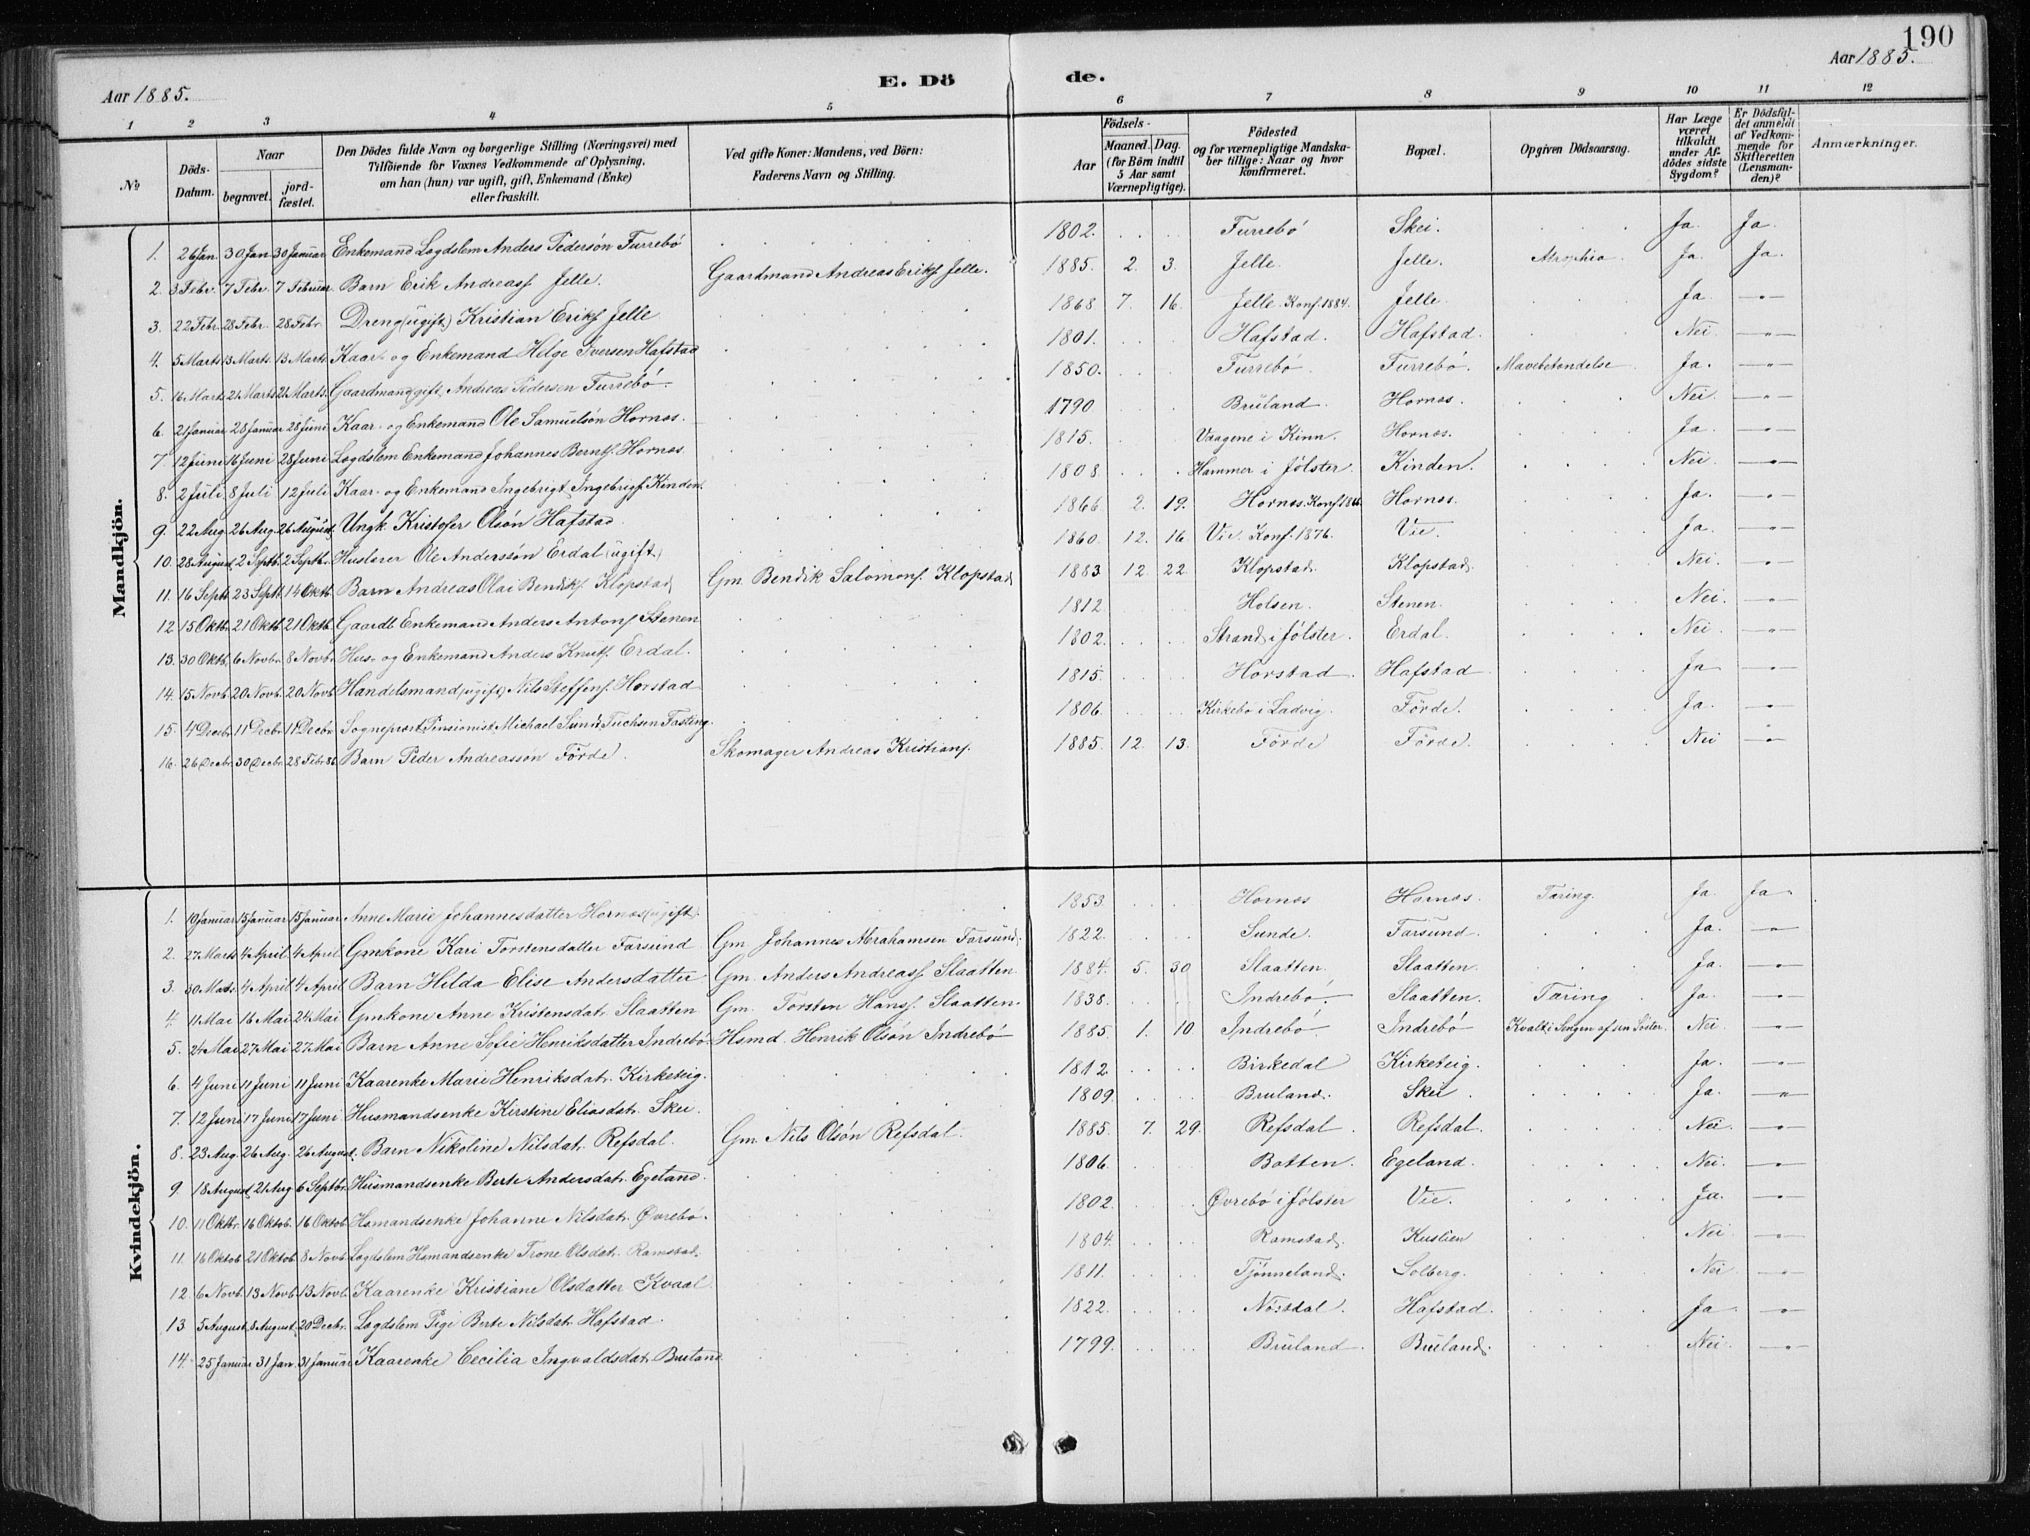 190
Aar 1885.
E. Dö
de.
Aar 1885.
1 2 3 4 5 6 7 8 9 10 11 12
№
Döds-Datum.
Naar
begravet.
jord-fæstet.
Den Dödes fulde Navn og borgerlige Stilling (Næringsvei) med Tilföiende for Voxnes Vedkommende af Oplysning, om han (hun) var ugift, gift, Enkemand (Enke) eller fraskilt.
Ved gifte Koner: Mandens, ved Börn: Faderens Navn og Stilling.
Födsels-
Aar
Maaned. Dag.
(for Börn indtil 5 Aar samt Værnepligtige).
Födested og for værnepligtige Mandskaber tillige: Naar og hvor konfirmeret.
Bopæl.
Opgiven Dödsaarsag.
Har Læge været tilkaldt under Afdödes sidste Sygdom?
Er Dödsfaldet anmeldt af Vedkommende for Skifteretten (Lensmanden)?
Anmærkninger.
Mandkjön.
1. 26 Jan. 30 Jan 30 Januar Enkemand Lægdslem Anders Pedersön Furrebö 1802. Furrebö Skei. Ja. Ja.
2. 3 Febr. 7 Febr. 7 Februar Barn Erik Andreass Jelle. Gaardmand Andreas Eriks Jelle. 1885. 2. 3. Jelle. Jelle. Atrophia Ja. Ja.
3. 22 Febr. 28 Febr. 28 Febr. Dreng (ugift) Kristian Eriks Jelle 1868 7. 16. Jelle. Konf. 1884. Jelle. Ja -"-
4. 5 Marts 13 Marts. 13 Marts. Kaar- og Enkemand Helge Iversen Hafstad 1801. Hafstad. Hafstad. Nei -"-
5. 16 Marts 21 Marts 21 Marts. Gaardmand gift Andreas Pedersen Furrebö 1850. Furrebö Furrebö. Mavebetændelse Ja. -"-
6. 21 Januar 28 Januar 28 Juni Kaar- og Enkemand Ole Samuelsön Hornæs. 1790 Bruland. Hornæs. Nei. -"-
7. 12 Juni 16 Juni 28 Juni Lægdslem Enkemand Johannes Bernts. Hornæs. 1815. Vaagene i Kinn. Hornæs. Ja. -"-
8. 2 Juli. 8 Juli 12 Juli Kaar- og Enkemand Ingebrigt Ingebrigts Kinden. 1808. Hammer i Jølster. Kinden. Nei. -"-
9. 22 Aug. 26 Aug. 26 August Ungk. Kristofer Olsön Hafstad. 1866 2. 19. Hornæs. Hornæs. Ja. -"-
10. 28 August 2 Septb. 2 Septb. Huslærer Ole Anderssön Erdal (ugift) 1860 12. 16. Vie. Konf. 1876. Vie. Ja. -"-
11. 16 Septb 23 Septb 14 Oktb. Barn Andreas Olai Bendiks Klopstad Gm. Bendik Salomons. Klopstad 1883 12. 22. Klopstad. Klopstad. Nei. -"-
12 15 Oktbr. 21 Oktb. 21 Oktb. Gaardl. Enkemand Anders Antons Stenen 1812 Holsen. Stenen. Nei. -"-
13. 30 Oktb. 6 Novbr. 8 Novb. Hus- og Enkemand Anders Knuts. Erdal. 1802. Strand i Jølster. Erdal. Nei. -"-
14. 15 Novb. 20 Novb. 20 Novb Handelsmand (ugift) Nils Steffens. Horstad 1815. Horstad Hafstad Ja -"-
15. 4 Decbr. 11 Decbr. 11 Decbr. Sogneprest Pensionist Michael Sundt Tuchsen Fasting. 1806. Kirkebø i Ladvig. Förde. Ja. -"-
16. 26 Decbr. 30 Decbr. 28 Febr 86. Barn Peder Andreassön Förde. Skomager Andreas Kristians. 1885. 12. 13. Förde Förde. Nei -"-
Kvindekjön.
1. 10 Januar 15 Januar. 15 Januar. Anne Marie Johannesdatter Hornæs (ugift). 1853. Hornæs Hornæs. Tæring. Ja. Ja.
2. 27 Marts 4 April 4 April. Gmkone Kari Torstensdatter Farsund Gm Johannes Abrahamsen Farsund. 1822. Sunde. Farsund. Ja. -"-
3. 30 Mai. 4 April 4 April Barn Hilda Elise Andersdatter Gm. Anders Andreass. Slaatten 1884. 5. 30 Slaatten. Slaatten. Ja. -"-
4. 11 Mai 16 Mai 24 Mai Gmkone Anne Kristensdatr. Slaatten Gm. Torsten Hans. Slaatten. 1838. Indrebö. Slaatten. Tæring Ja. -"-
5. 24 Mai 27 Mai 27 Mai Barn Anne Sofie Henriksdatter Indrebö. Hsmd. Henrik Olsön Indrebö 1885. 1. 10 Indrebö Indrebö Kvalt i Sengen af sin Söster. Nei. -"-
6. 4 Juni 11 Juni 11 Juni Kaarenke Marie Henriksdatr. Kirketeig. 1812 Birkedal Kirketeig. Ja. -"-
7. 12 Juni 17 Juni 17 Juni Husmandsenke Kirstine Eliasdatr. Skei. 1809. Bruland. Skei. Ja. -"-
8. 23 Aug. 26 Aug. 26 August. Barn Nikoline Nilsdatr. Refsdal. Gm. Nils Olsön Refsdal. 1885 7 29. Refsdal Refsdal. Nei. -"-
9. 18 August 21 Aug 6 Septbr. Husmandsenke Berte Andersdatr. Egeland. 1806. Botten. Egeland. Nei. -"-
10. 11 Oktbr. 16 Oktob. 16 Oktob Hsmandsenke Johanne Nilsdatr. Øvrebö. 1802. Øvrebö i Jølster Vie. Ja. -"-
11. 16 Oktob. 21 Oktob. 8 Novb. Lægdslem Hsmandsenke Trone Olsdatr. Ramstad. 1804. Ramstad. Kuslien Nei -"-
12. 6 Novb. 13 Novb. 13 Novb. Kaarenke Kristiane Olsdatter Kvaal. 1811. Tjønneland. Solberg. Nei -"-
13 5 August. 8 August. 20 Decbr. Lægdslem Pigi Berte Nilsdatr. Hafstad. 1822. Nörsdal. Hafstad. Ja -"-
14. 25 Januar 31 Jan. 31 Januar Kaarenke Cecilia Ingvaldsdat. Bruland 1799. Bruland Bruland. Nei. -"-